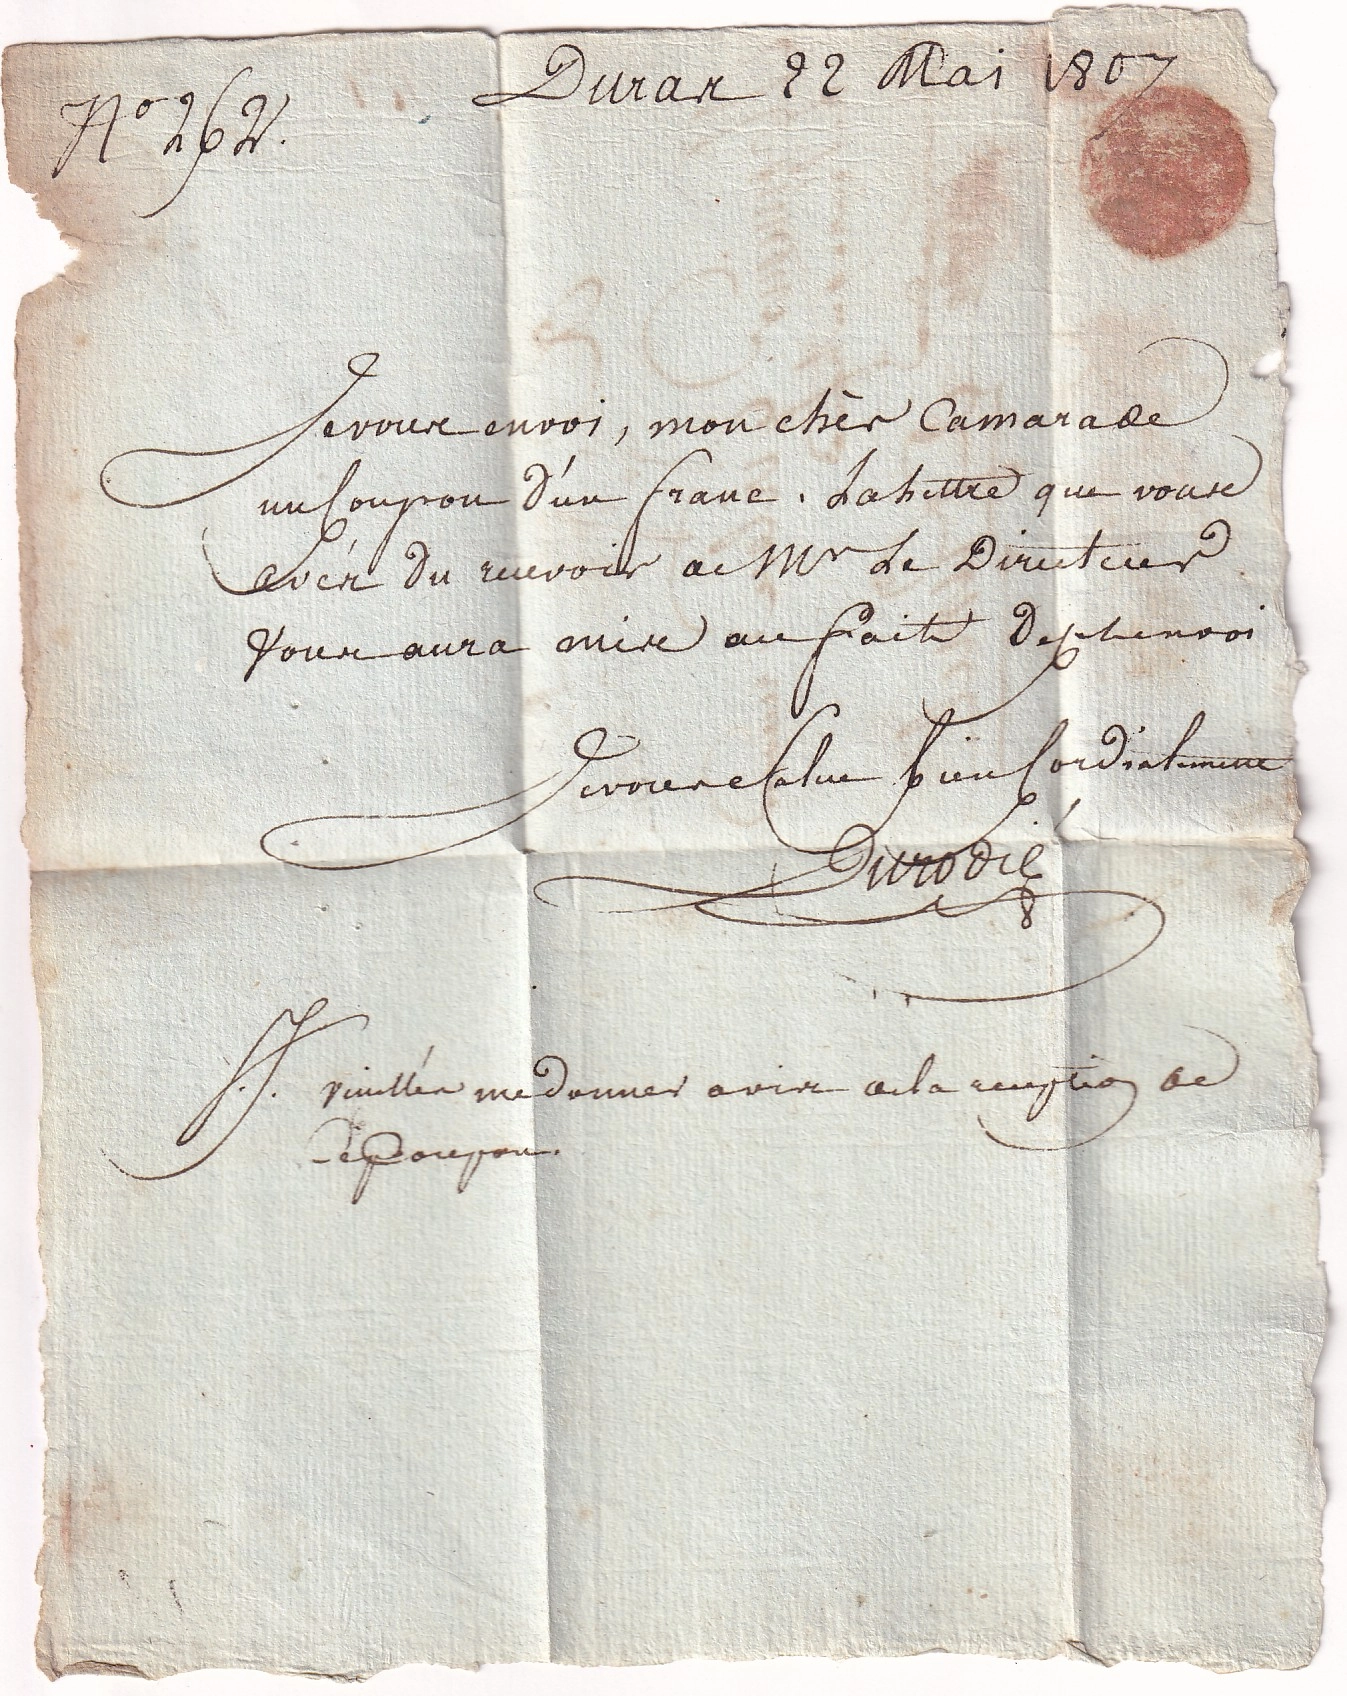 Duras 22 Mai 1807
No 262.
Je vous envoi, mon chèr Camarade
un Coupon d'un franc. La Lettre que vous
avés du recevoir de Mr Le Directeur
Vous aura mis au fait De cet envoi
Je vous Salue bien Cordialement
Durodié
veuillés me donner avis de la reception de
Ce Coupon.